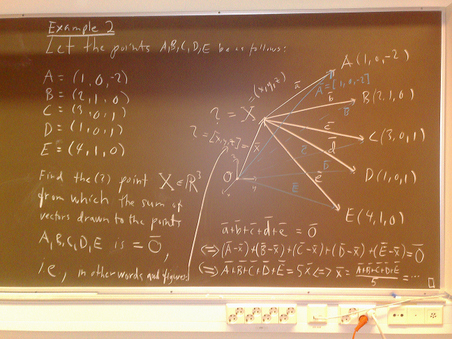 Example 2
Let the points A,B,C,D,E be as follows:
A = (1, 0, -2)
B = (2, 1, 0)
C = (3, 0, 1)
D = (1, 0, 1)
E = (4, 1, 0)
Find the (?) point X ∈ ℝ³
from which the sum of
vectors drawn to the points
A, B, C, D, E is = 0̄,
i.e., in other words and figures
(x,y,z)
? = X
? = [x,y,z] = x̄
O
A (1, 0, -2)
Ā = [1,0,-2]
B (2, 1, 0)
C (3, 0, 1)
D (1, 0, 1)
E (4, 1, 0)
ā
b̄
c̄
d̄
ē
x̄
ā + b̄ + c̄ + d̄ + ē = 0̄
⇔ (Ā-x̄) + (B̄-x̄) + (C̄-x̄) + (D̄-x̄) + (Ē-x̄) = 0̄
⇔ Ā+B̄+C̄+D̄+Ē = 5x̄ ⇔ x̄ = (Ā+B̄+C̄+D̄+Ē)/5 = ...